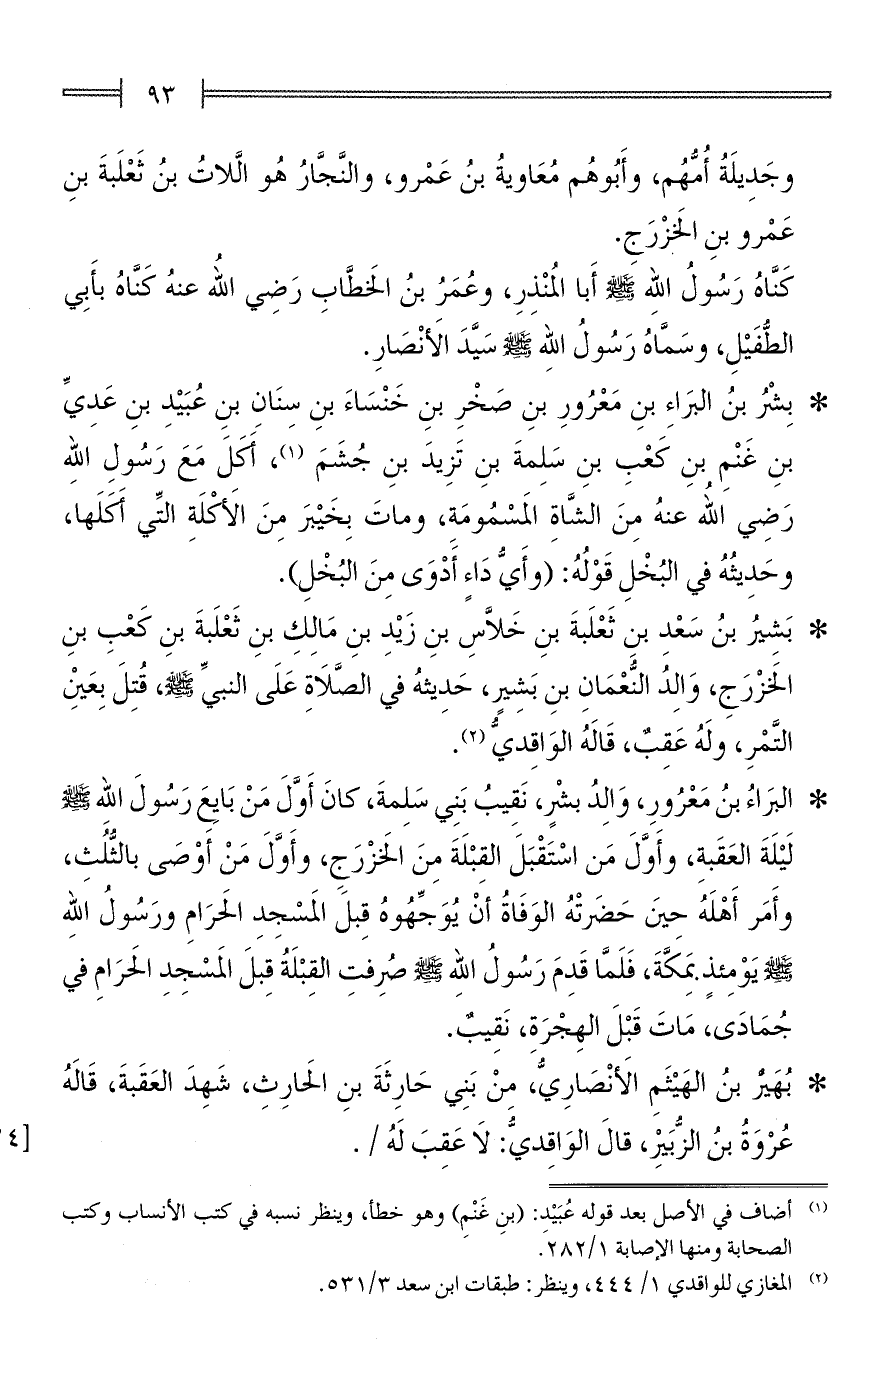 ٩٣
وجَدِيلَةُ أُمُّهُم، وأَبُوهُم مُعَاويةُ بنُ عَمْرو، والنَّجَّارُ هُو الَّلاتُ بنُ ثَعْلَبةَ بنِ
عَمْرو بنِ الخَزْرَجِ.
كَنَّاهُ رَسُولُ اللهِ ﷺ أَبا المُنْذِرِ، وعُمَرُ بنُ الخَطَّابِ رَضِي اللهُ عنهُ كَنَّاهُ بأَبِي
الطُّفَيْلِ، وسَمَّاهُ رَسُولُ اللهِ ﷺ سَيَّدَ الأَنْصَارِ.
* بِشْرُ بنُ البَرَاءِ بنِ مَعْرُورِ بنِ صَخْرِ بنِ خَنْسَاءَ بنِ سِنَانِ بنِ عُبَيْدِ بنِ عَديِّ
بنِ غَنْمِ بنِ كَعْبِ بنِ سَلِمةَ بنِ تَزِيدَ بنِ جُشَمَ (١)، أَكَلَ مَعَ رَسُولِ اللهِ
رَضِي اللهُ عنهُ مِنَ الشَّاةِ المَسْمُومَةِ، وماتَ بِخَيْبَرَ مِنَ الأَكْلَةِ التِّي أَكَلَها،
وحَدِيثُهُ في البُخْلِ قَوْلُهُ: (وأَيُّ دَاءٍ أَدْوَى مِنَ البُخْلِ).
* بَشِيرُ بنُ سَعْدِ بنِ ثَعْلَبةَ بنِ خَلاَّسِ بنِ زَيْدِ بنِ مَالِكِ بنِ ثَعْلَبةَ بنِ كَعْبِ بنِ
الخَزْرَجِ، وَالدُ النُّعْمَانِ بنِ بَشِيرٍ، حَدِيثهُ في الصَّلَاةِ عَلَى النبيِّ ﷺ، قُتِلَ بِعَيْنِ
التَّمْرِ، ولَهُ عَقِبٌ، قَالَهُ الوَاقِديُّ (٢).
* البَرَاءُ بنُ مَعْرُورٍ، وَالدُ بِشْرٍ، نَقِيبُ بَنِي سَلِمةَ، كانَ أَوَّلَ مَنْ بَايعَ رَسُولَ اللهِ ﷺ
لَيْلَةَ العَقَبةِ، وأَوَّلَ مَن اسْتَقْبَلَ القِبْلَةَ مِنَ الخَزْرَجِ، وأَوَّلَ مَنْ أَوْصَى بالثُّلُثِ،
وأَمَر أَهْلَهُ حِينَ حَضَرَتْهُ الوَفَاةُ أنْ يُوَجِّهُوهُ قِبلَ المَسْجِدِ الحَرَامِ ورَسُولُ اللهِ
ﷺ يَوْمِئذٍ بمَكَّةَ، فَلَمَّا قَدِمَ رَسُولُ اللهِ ﷺ صُرِفتِ القِبْلَةُ قِبلَ المَسْجِدِ الحَرَامِ في
جُمَادَى، مَاتَ قَبْلَ الهِجْرَةِ، نَقِيبٌ.
* بُهَيْرُ بنُ الهَيْثَمِ الأَنْصَارِيُّ، مِنْ بَنِي حَارِثَةَ بنِ الحَارِثِ، شَهِدَ العَقَبةَ، قَالَهُ
عُرْوَةُ بنُ الزُّبَيْرِ، قالَ الوَاقِديُّ: لَا عَقِبَ لَهُ / .
(١) أضاف في الأصل بعد قوله عُبَيْد: (بنِ غَنْم) وهو خطأ، وينظر نسبه في كتب الأنساب وكتب
الصحابة ومنها الإصابة ١/ ٢٨٢.
(٢) المغازي للواقدي ١/ ٤٤٤، وينظر: طبقات ابن سعد ٣/ ٥٣١.